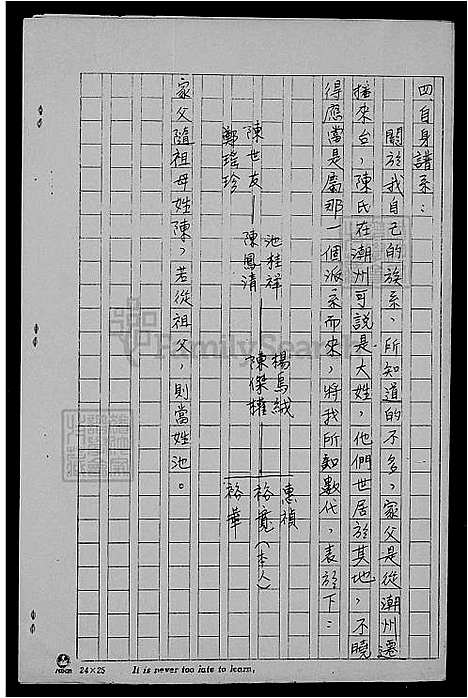 四自身譜系：
關於我自己的族系，所知道的不多，家父是從潮州遷
播來台，陳氏在潮州可說是大姓，他們世居於其地，不曉
得應當是屬那一個派系而來，將我所知數代，表於下：
池桂祥
陳世友——陳鳳清
鄭瑤珍
楊烏絨
陳傑權
惠禎
裕寬（本人）
裕華
家父隨祖母姓陳，若從祖父，則當姓池。
FamilySearch
24×25
It is never too late to learn,